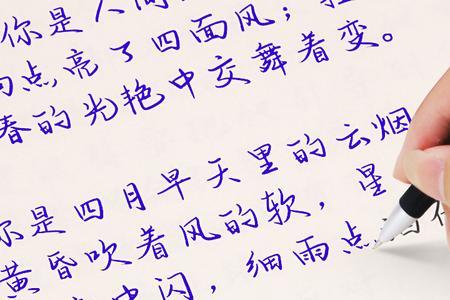 你是人间
点亮了四面风；
春的光艳中交舞着变。
你是四月早天里的云烟
黄昏吹着风的软，星
中闪，细雨点